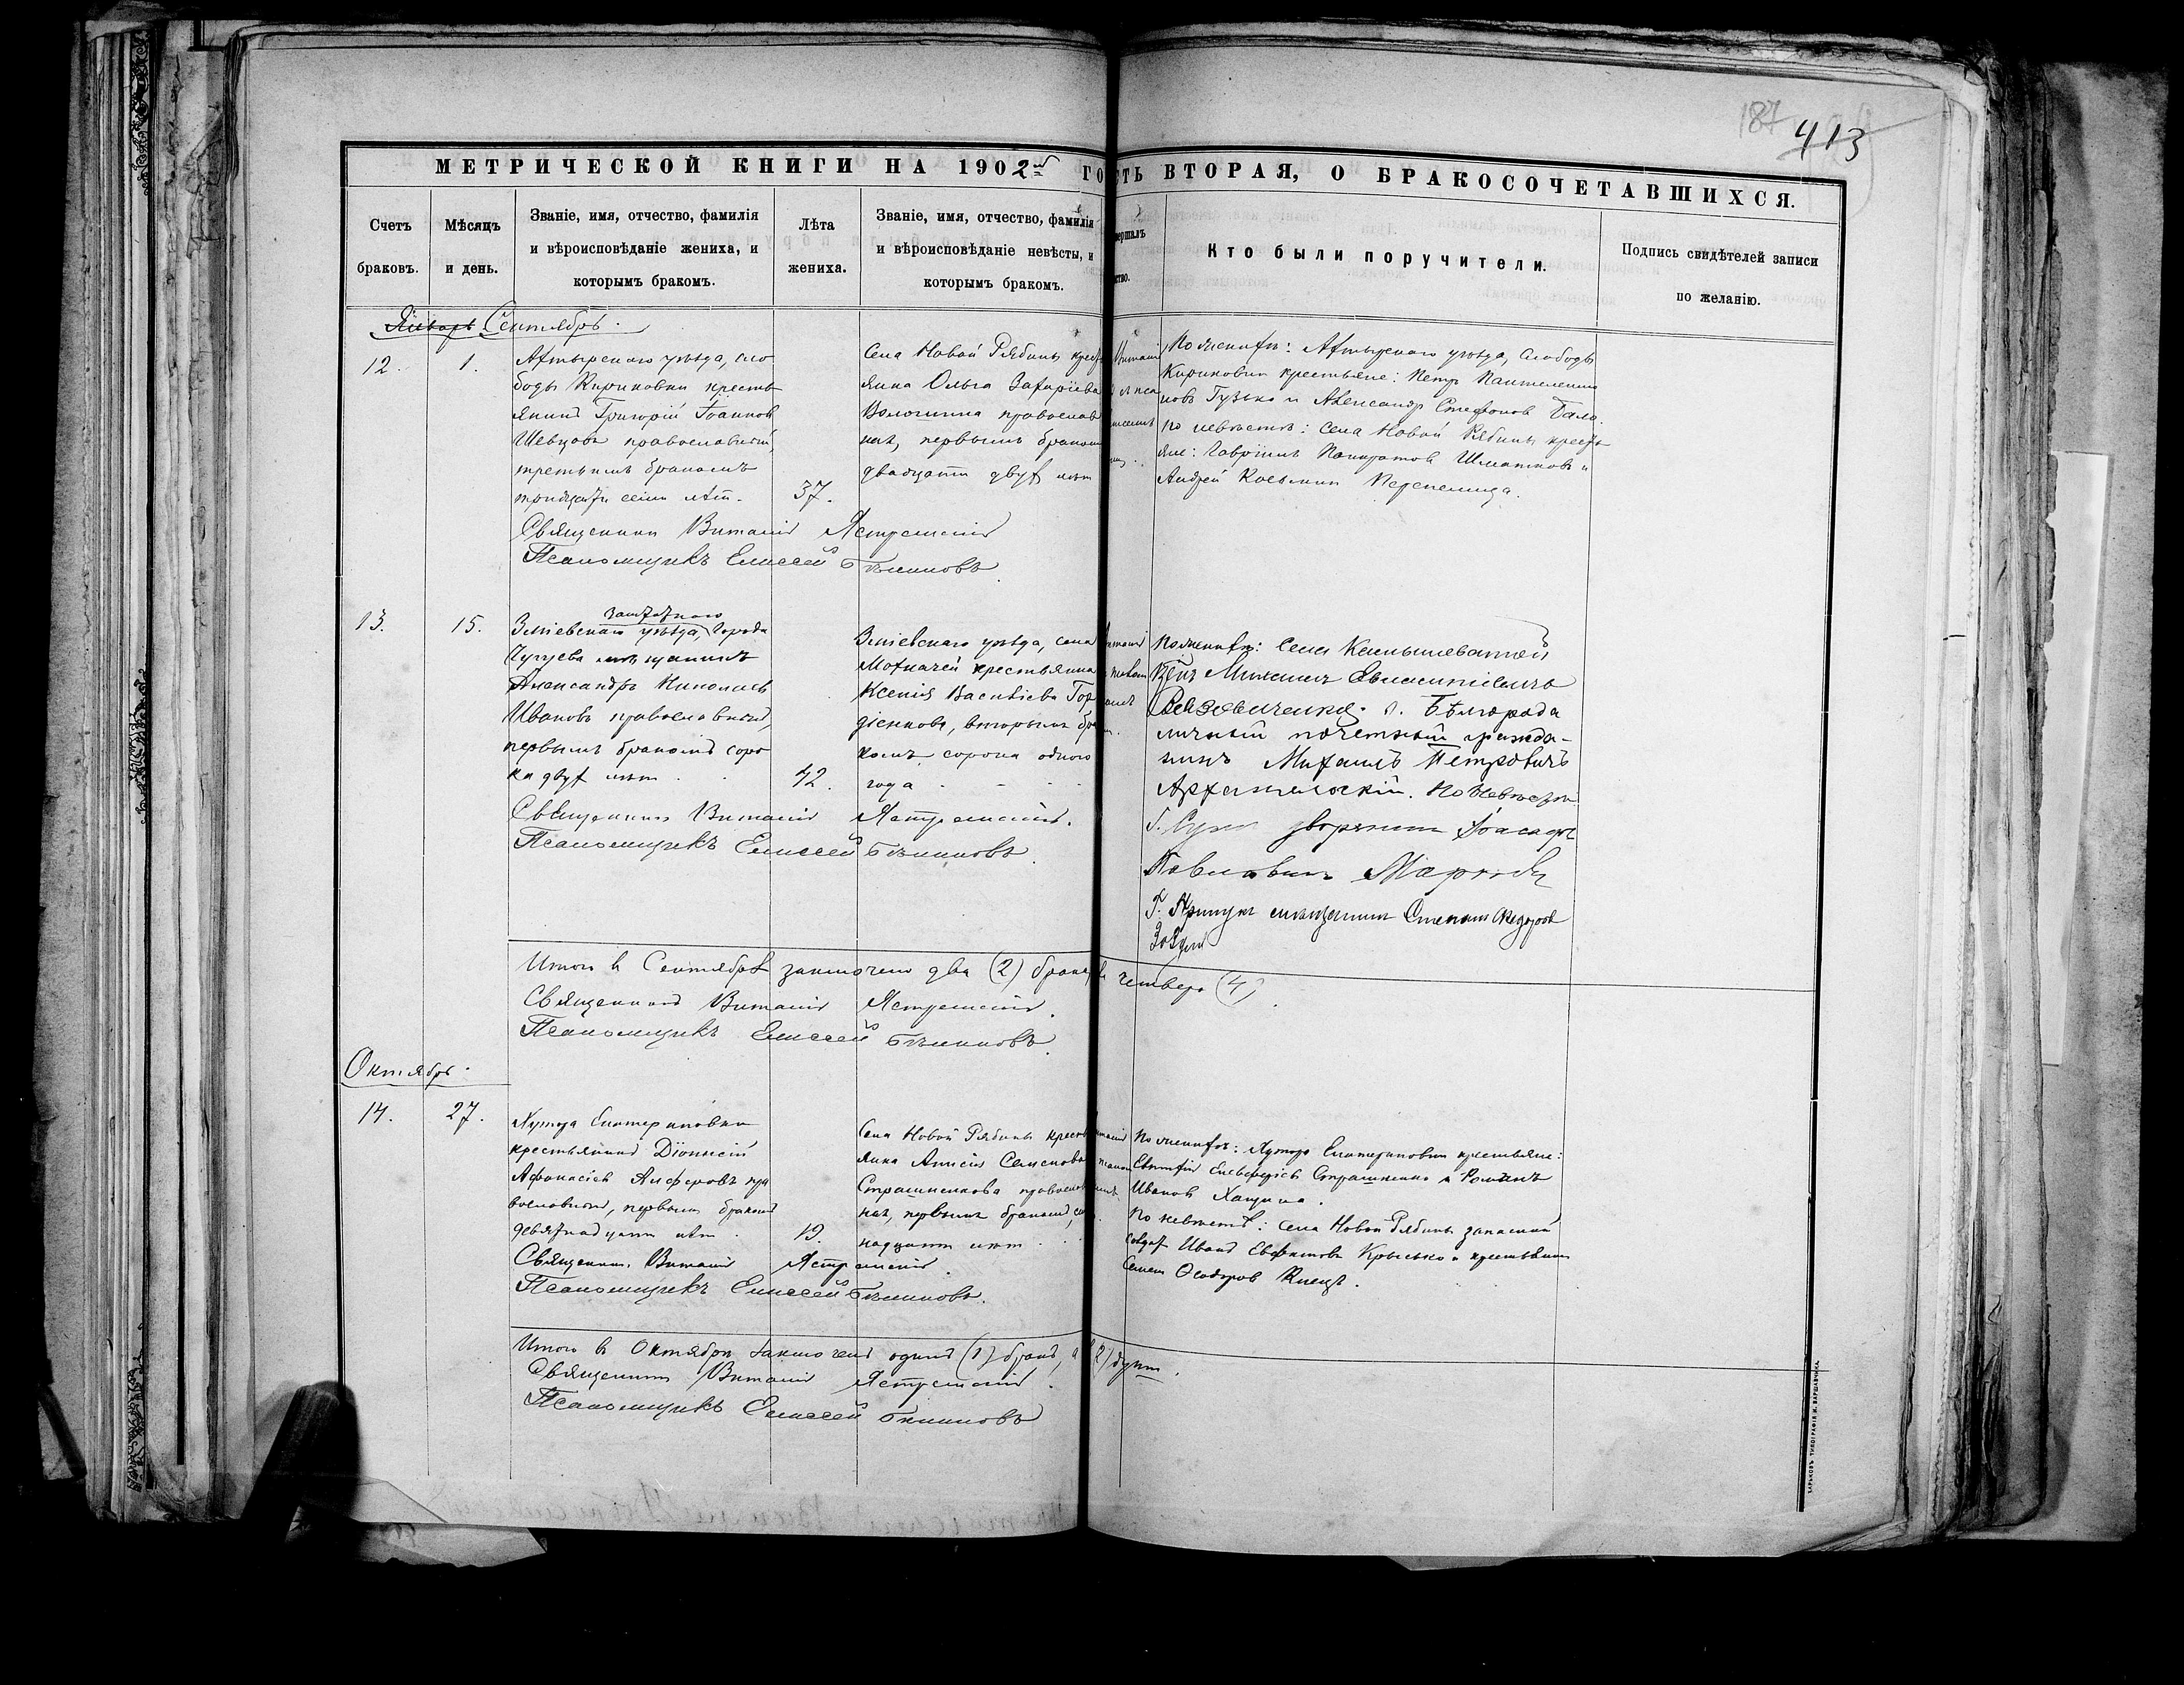 187
413
МЕТРИЧЕСКОЙ КНИГИ НА 1902й ГО
СТЬ ВТОРАЯ, О БРАКОСОЧЕТАВШИХСЯ.
Счетъ браковъ.
Мѣсяцъ и день.
Званіе, имя, отчество, фамилія
и вѣроисповѣданіе жениха, и
которымъ бракомъ.
Лѣта
жениха.
Званіе, имя, отчество, фамилія
и вѣроисповѣданіе невѣсты, и
которымъ бракомъ.
Кто были поручители.
Подпись свидѣтелей записи
по желанію.
Январь Сентябрь.
12.
1.
Ахтырскаго уѣзда, сло
боды Кириковки кресть
янинъ Григорій Іоанновъ
Шевцовъ православный,
третьимъ бракомъ
тридцати семи лѣтъ.
37.
Села Новой Рябины крест
янка Ольга Захаріева
православ
ная, первымъ бракомъ
двадцати двух лѣт
По женихѣ: Ахтырскаго уѣзда, слободы
Кириковки крестьяне: Петръ Пантелеимо
новъ Гузько и Александр Стефанов
по невѣстѣ: села Новой Рябины кресть
яне: Гавріилъ Панкратов Шматковъ и
Андрей Косьмин Перепелица.
Священникъ Виталій Ястремскій
Псаломщикъ Елисей Бѣликовъ
13.
15.
заштатнаго
Зміевскаго уѣзда, города
Чугуева мѣщанинъ
Александръ Николаевъ
Ивановъ православный,
первымъ бракомъ соро
ка двух лѣт
42.
Зміевскаго уѣзда, села
Мохначей крестьянка
Ксенія Васильева Гор
діенкова, вторымъ бра
комъ, сорока одного
года
По женихѣ: Села Камышеватой
Михаилъ
г. Бѣлгорода
личный почетный гражда-
нинъ Михаилъ Петровичъ
Архангельскій. По невѣстѣ
г. Сумъ дворянинъ
Павловичъ
Г. мѣщанинъ Степанъ Федоров
Священникъ Виталій Ястремскій.
Псаломщикъ Елисей Бѣликовъ.
Итого в Сентябрѣ заключено два (2) брака, четверо (4).
Священникъ Виталій Ястремскій.
Псаломщикъ Елисей Бѣликовъ.
Октябрь.
14.
27.
Хутора Екатериновки
крестьянинъ Діонисій
Афанасіевъ Алферовъ пра
вославный, первымъ бракомъ
девятнадцати лѣт
19.
Села Новой Рябины кресть
янка Анисія Семенова
Страшненкова православ
ная, первымъ бракомъ,
надцати лѣт
По женихѣ: Хутора Екатериновки крестьяне:
Страшненко и Романъ
Иванов
По невѣстѣ: села Новой Рябины запасный
солдат Иванъ Крысько и крестьянин
Семен Ѳеодоров
Священникъ Виталій Ястремскій.
Псаломщикъ Елисей Бѣликовъ.
Итого в Октябрѣ заключенъ одинъ (1) бракъ, (2) душ.
Священникъ Виталій Ястремскій.
Псаломщикъ Елисей Бѣликовъ
ХАРЬКОВЪ ТИПОГРАФІЯ И. ВАРШАВЧИКА